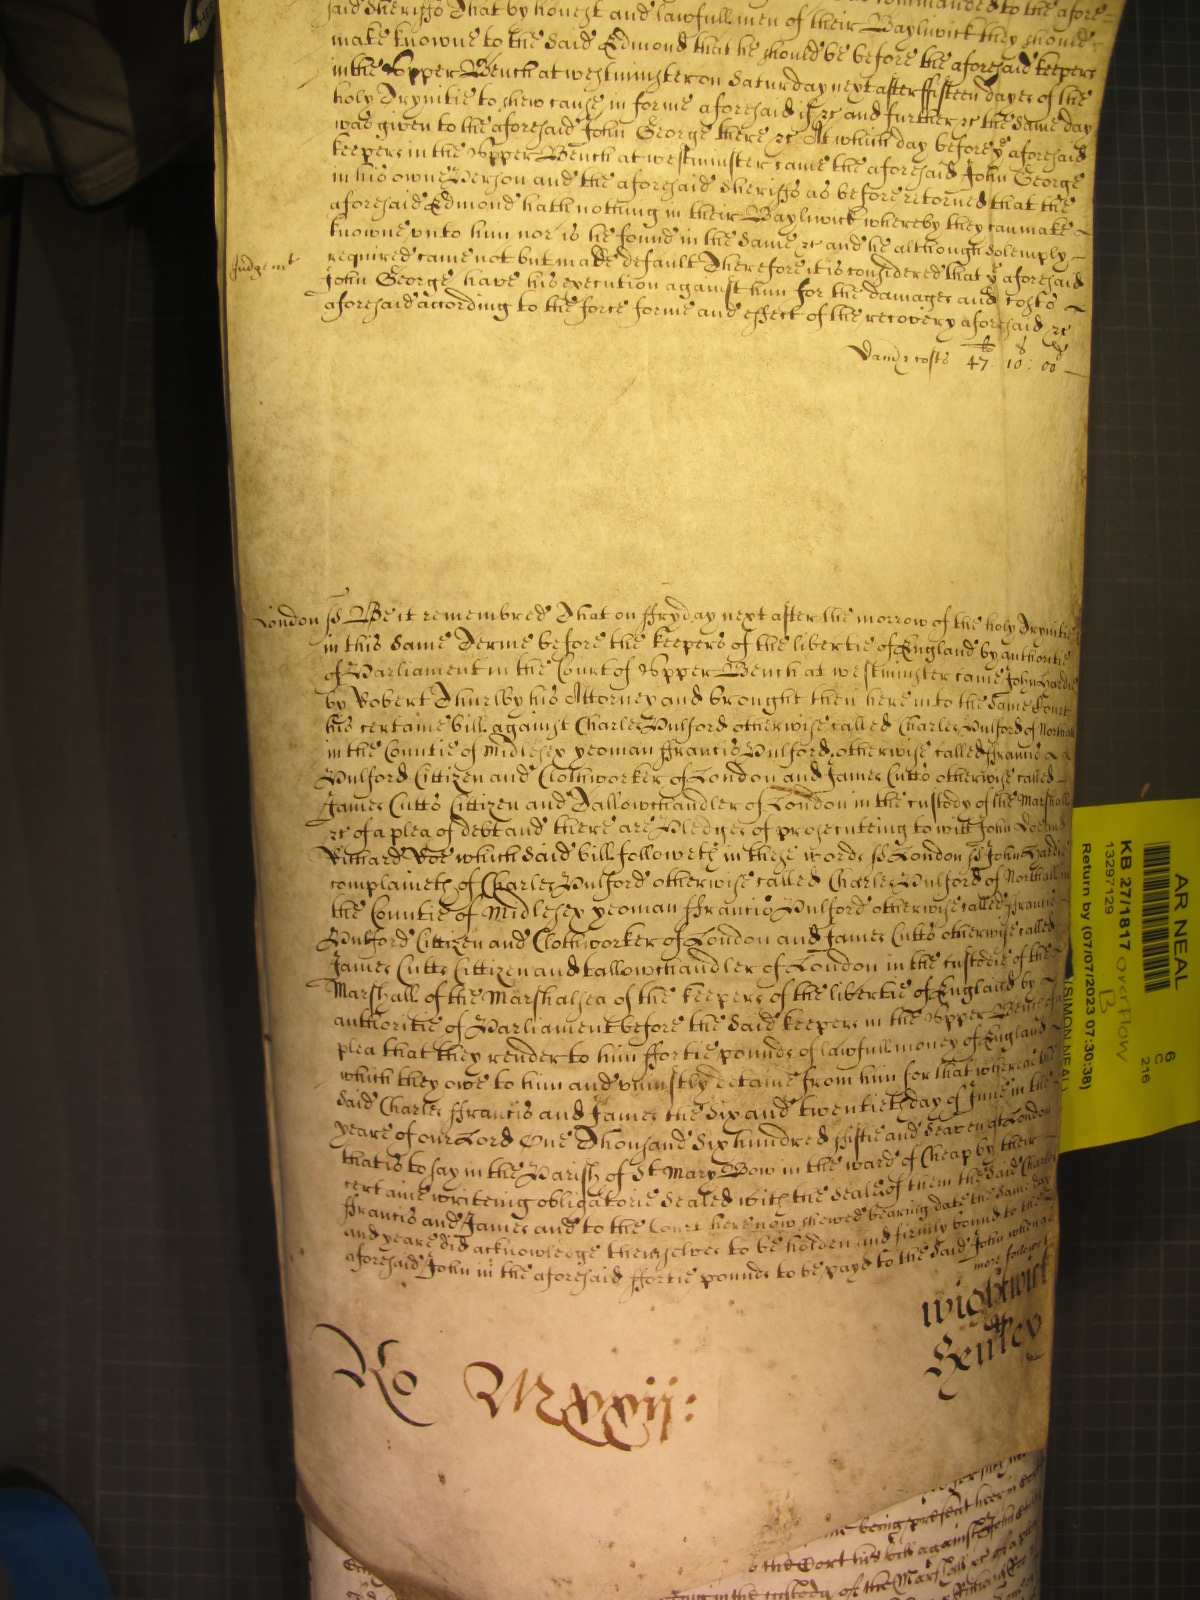 said Sheriffs That by honest and lawfull men of their Bayliwick they should
make knowne to the said Edmond that he should be before the aforesaid keepers
in the Upper Bench at Westminster on Saturday next after fifteen dayes of the
holy Trynitie to shew cause in forme aforesaid if &c and further &c the same day
was given to the aforesaid John George there &c At which day before ye aforesaid
keepers in the Upper Bench at Westminster came the aforesaid John George
in his owne Person and the aforesaid Sheriffs as before retorned that the
aforesaid Edmond hath nothing in their Bayliwick whereby they can make
knowne unto him nor is he found in the same &c and he although solemply
Judgemt
required came not but made default Therefore it is considered that ye aforesaid
John George have his execution against him for the damages and costs
aforesaid according to the force forme and effect of the recovery aforesaid &c
costs 47 : 10 : 00
London ss Be it remembred That on Fryday next after the morrow of the holy Trynitie
in this same Terme before the keepers of the libertie of England by authoritie
of Parliament in the Court of Upper Bench at Westminster came John Hardie
by Robert Thurlby his Attorney and brought then here into the same Court
his certaine bill against Charles Pulford otherwise called Charles Pulford of
in the Countie of Midlesex yeoman ffrancis Pulford otherwise called ffrancis
Pulford Cittizen and Clothworker of London and James Cutts otherwise called
James Cutts Cittizen and Tallowchandler of London in the custody of the Marshall
&c of a plea of debt and there are Pledges of prosecuteing to witt John Doe and
Richard Roe which said bill followeth in these words ss London ss John Hardie
complaineth of Charles Pulford otherwise called Charles Pulford of Northall in
the Countie of Midlesex yeoman ffrancis Pulford otherwise called ffrancis
Pulford Cittizen and Clothworker of London and James Cutts otherwise called
James Cutts Cittizen and tallowchandler of London in the custodie of the
Marshall of the Marshalsea of the keepers of the libertie of England by
authoritie of Parliament before the said keepers in the Upper Bench of a
plea that they render to him ffortie pounds of lawfull money of England
which they owe to him and uniustly detaine from him for that whereas the
said Charles ffrancis and James the six and twentieth day of June in the
yeare of our Lord One Thousand six hundred fiftie and seaven at London
that is to say in the Parish of St Mary Bow in the ward of Cheap by their
certaine writeing obligatorie sealed with the seales of them the said Charles
ffrancis and James and to the Court here now shewed bearing date the same day
and yeare did acknowledge themselves to be holden and firmly bound to the
aforesaid John in the aforesaid ffortie pounds to be payd to the said John when
more followes
Wightwick
Henley
Ro MXXij:
being present here in
the Cort his bill against John
in the custody of the Marshall &c of a plea
AR NEAL
KB 27/1817 overflow
13297129 B
Return by (07/07/2023 07:30:38)
(SIMON NEAL)
6
C
216